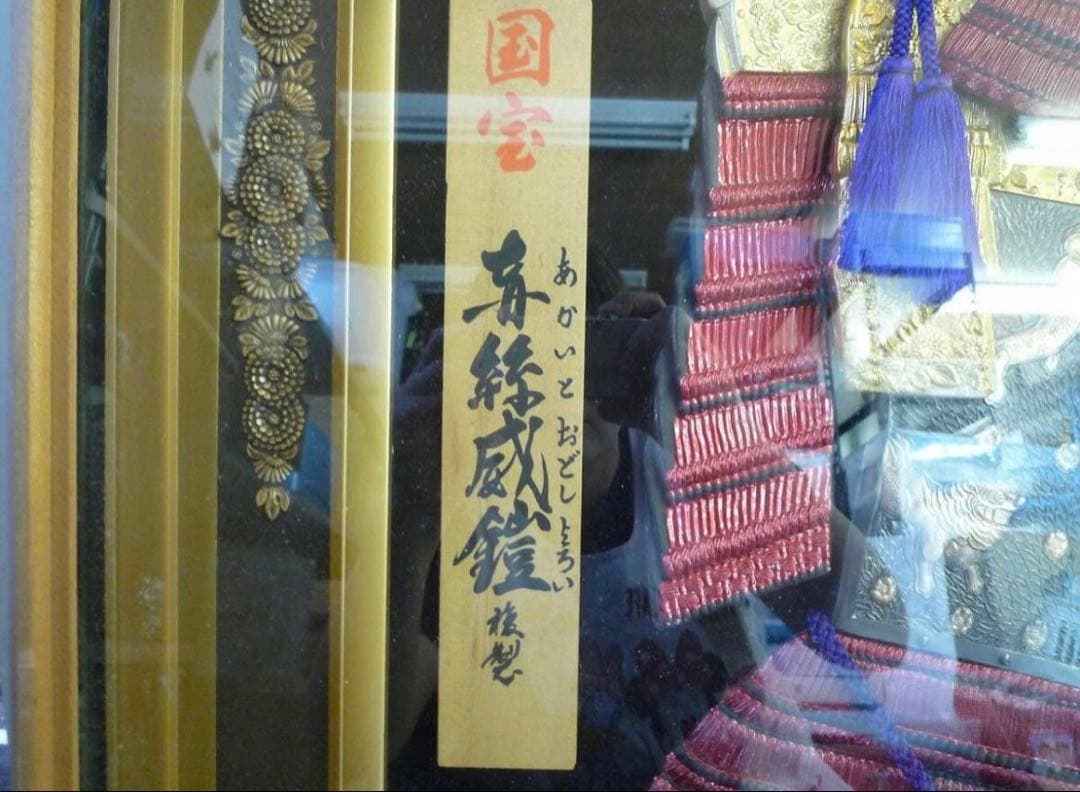 国宝
赤絲威鎧
あかいとおどしよろい
複製